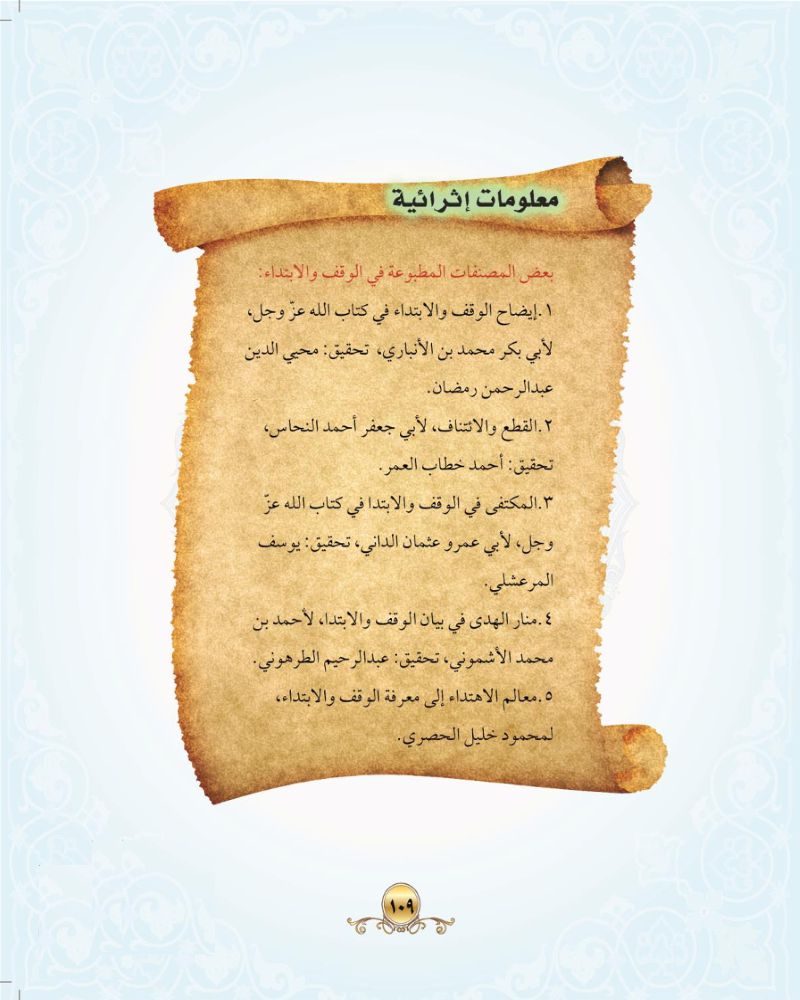 معلومات إثرائية
بعض المصنفات المطبوعة في الوقف والابتداء:
١.إيضاح الوقف والابتداء في كتاب الله عزّ وجل،
لأبي بكر محمد بن الأنباري، تحقيق: محيي الدين
عبدالرحمن رمضان.
٢.القطع والائتناف، لأبي جعفر أحمد النحاس،
تحقيق: أحمد خطاب العمر.
٣.المكتفى في الوقف والابتدا في كتاب الله عزّ
وجل، لأبي عمرو عثمان الداني، تحقيق: يوسف
المرعشلي.
٤.منار الهدى في بيان الوقف والابتدا، لأحمد بن
محمد الأشموني، تحقيق: عبدالرحيم الطرهوني.
٥.معالم الاهتداء إلى معرفة الوقف والابتداء،
لمحمود خليل الحصري.
١٠٩